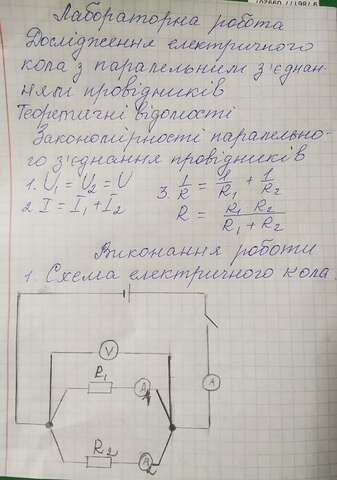 Лабораторна робота
Дослідження електричного
кола з паралельним з'єднан-
ням провідників
Теоретичні відомості
Закономірності паралельно-
го з'єднання провідників
1. U₁ = U₂ = U
2. I = I₁ + I₂
3. 1/R = 1/R₁ + 1/R₂
R = R₁ R₂ / R₁ + R₂
Виконання роботи
1. Схема електричного кола
V
R₁
A₁
A
R₂
A₂